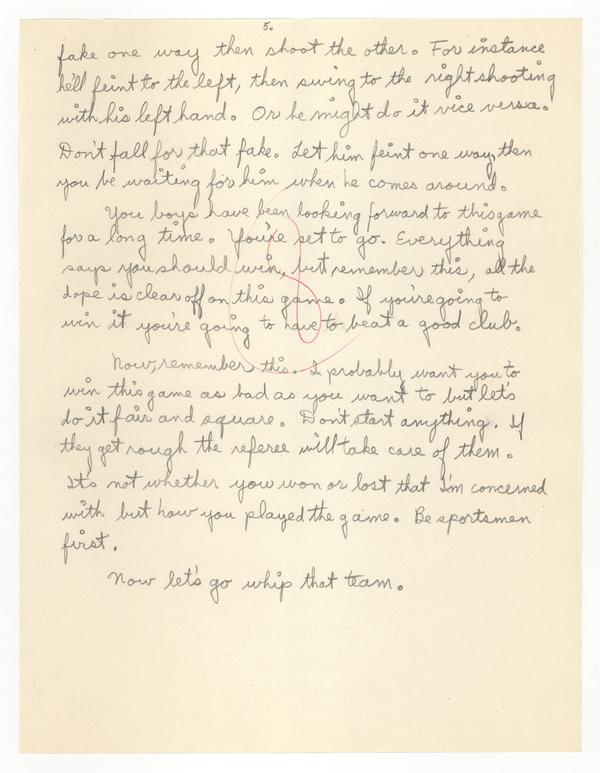 5.
fake one way then shoot the other. For instance
he'll feint to the left, then swing to the right shooting
with his left hand. Or he might do it vice versa.
Don't fall for that fake. Let him feint one way, then
you be waiting for him when he comes around.
You boys have been looking forward to this game
for a long time. You're set to go. Everything
says you should win, but remember this, all the
dope is clear off on this game. If you're going to
win it you're going to have to beat a good club.
Now, remember this. I probably want you to
win this game as bad as you want to but let's
do it fair and square. Don't start anything. If
they get rough the referee will take care of them.
It's not whether you won or lost that I'm concerned
with but how you played the game. Be sportsmen
first.
Now let's go whip that team.